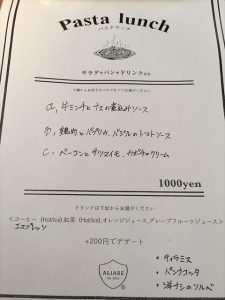 Pasta lunch
パスタランチ
サラダ+パン+ドリンク付き
a, 牛ミンチとナスの煮込みソース
b, 鶏肉とパプリカ、バジルのトマトソース
c, ベーコンとサツマイモ、カボチャクリーム
1000yen
ドリンクは下記からお選びください
<コーヒー (Hot/Ice),紅茶 (Hot/Ice),オレンジジュース,グレープフルーツジュース>
エスプレッソ
+200円でデザート
ALIARE
・ティラミス
・パンナコッタ
・洋ナシのソルベ